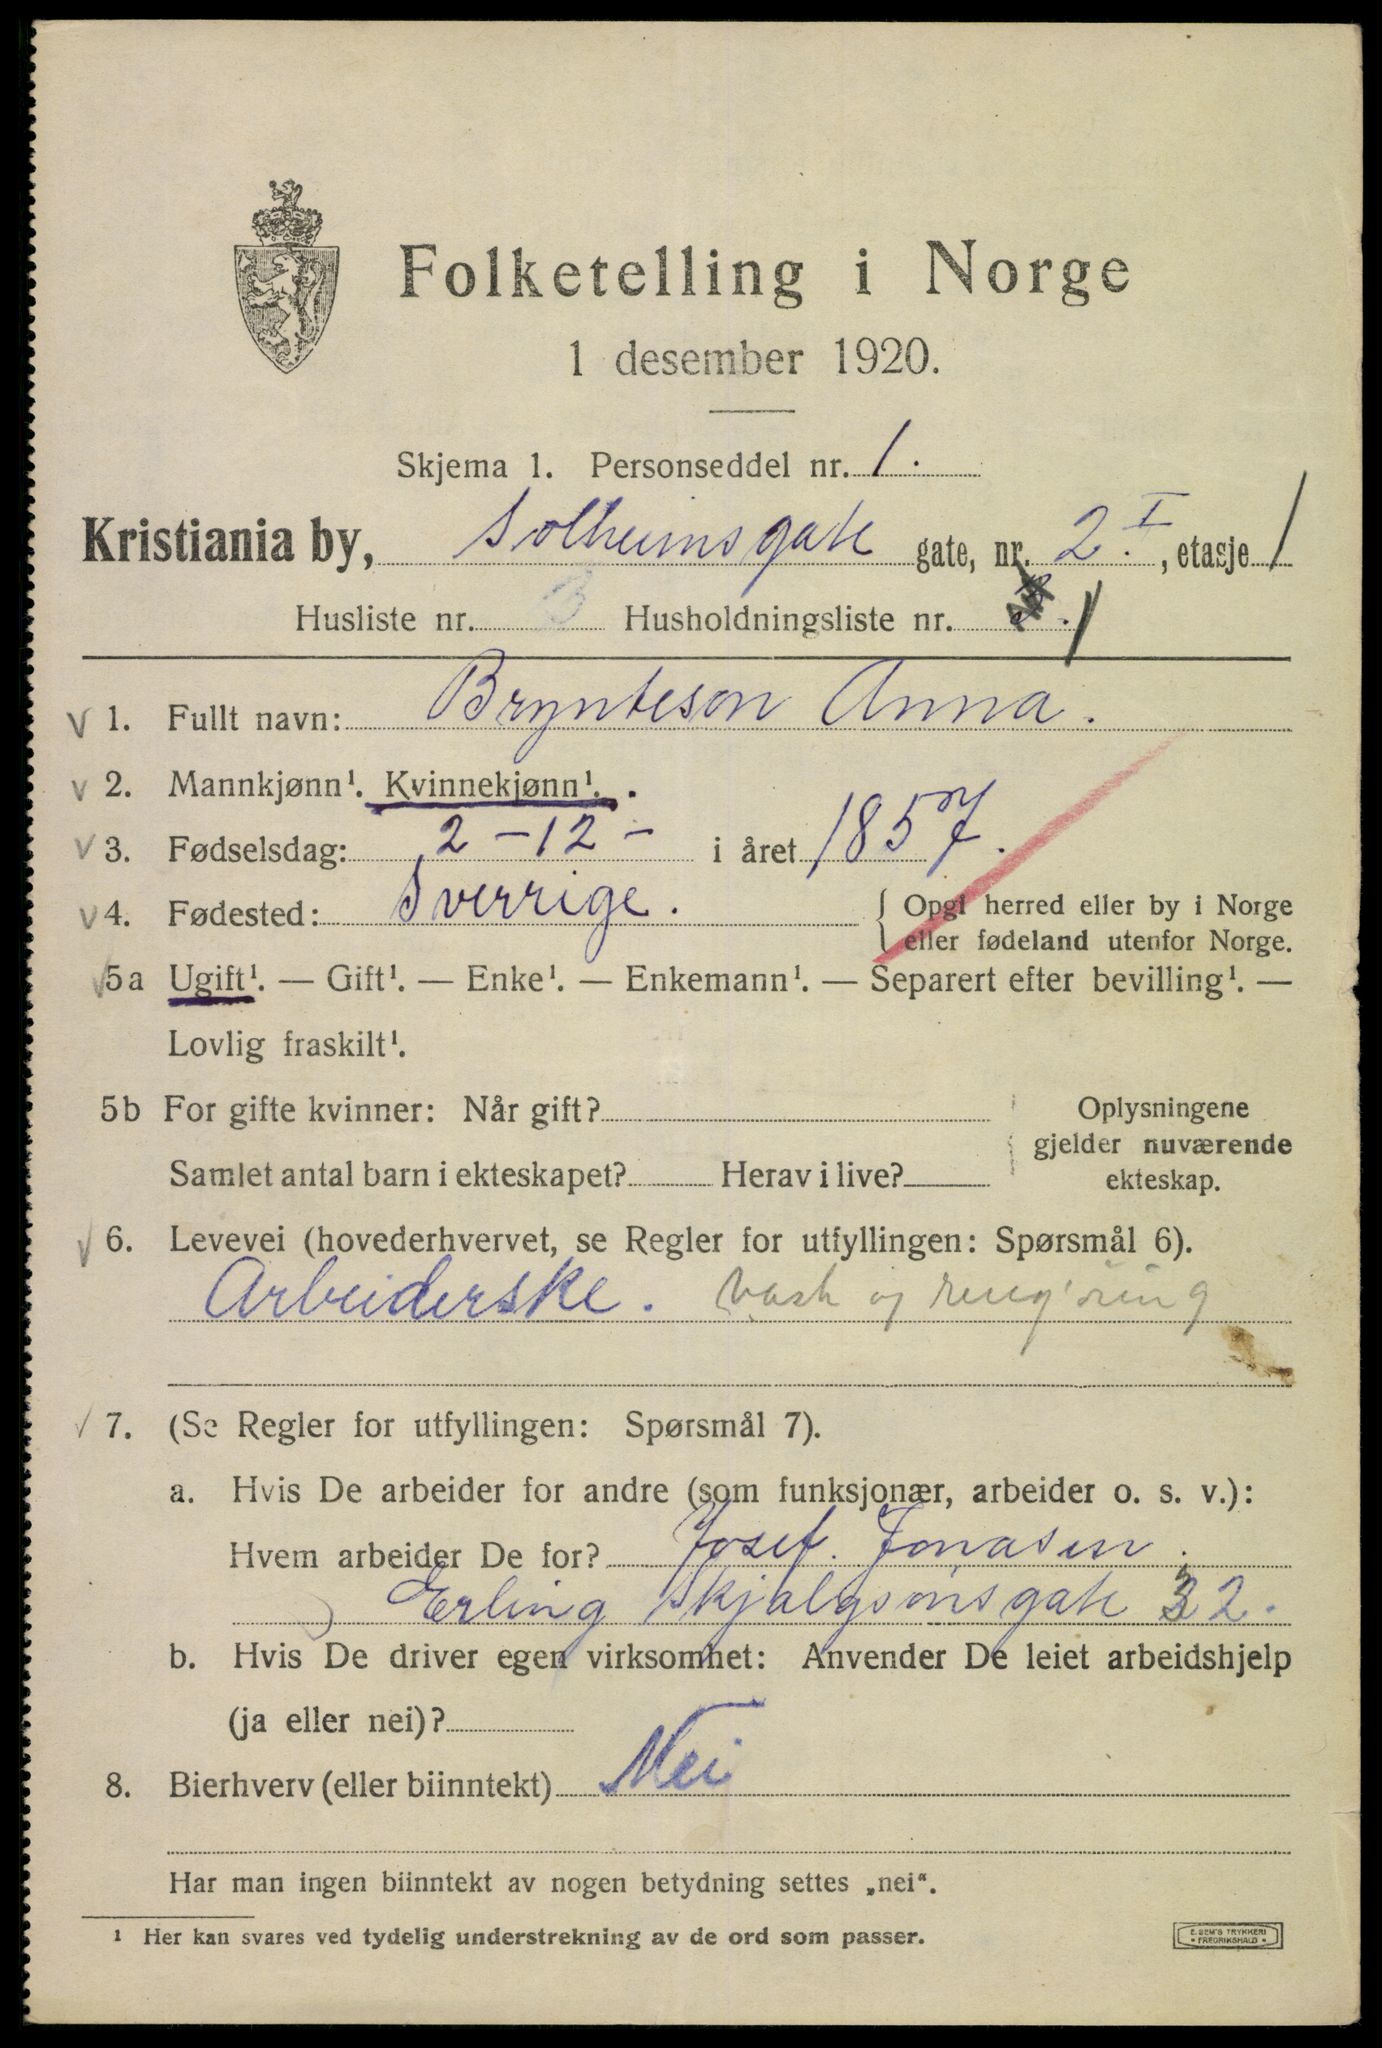 Folketelling i Norge
1 desember 1920.
Skjema 1. Personseddel nr. 1.
Kristiania by, Solheimsgate gate, nr. 2 I., etasje 1
Husliste nr. 3 Husholdningsliste nr. 1
√ 1. Fullt navn: Brynteson Anna.
√ 2. Mannkjønn¹. Kvinnekjønn¹.
√ 3. Fødselsdag: 2 – 12 – i året 1857.
√ 4. Fødested: Sverrige. { Opgi herred eller by i Norge
eller fødeland utenfor Norge.
√ 5a Ugift¹. — Gift¹. — Enke¹. — Enkemann¹. — Separert efter bevilling¹. —
Lovlig fraskilt¹.
5b For gifte kvinner: Når gift? Oplysningene
gjelder nuværende
Samlet antal barn i ekteskapet? Herav i live? ekteskap.
√ 6. Levevei (hovederhvervet, se Regler for utfyllingen: Spørsmål 6).
Arbeiderske. Vask og rengjöring
√ 7. (Se Regler for utfyllingen: Spørsmål 7).
a. Hvis De arbeider for andre (som funksjonær, arbeider o. s. v.):
Hvem arbeider De for? Josef. Jonasen.
Erling Skjalgsønsgate 32.
b. Hvis De driver egen virksomhet: Anvender De leiet arbeidshjelp
(ja eller nei)?
8. Bierhverv (eller biinntekt) Nei
Har man ingen biinntekt av nogen betydning settes „nei“.
¹ Her kan svares ved tydelig understrekning av de ord som passer.
E. SEM'S TRYKKERI
• FREDRIKSHALD •